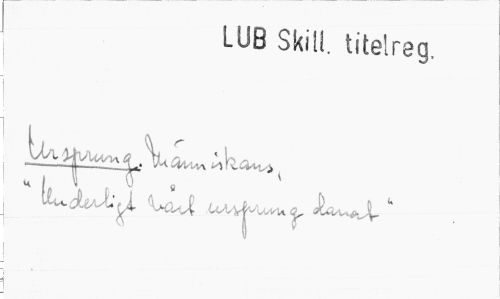 LUB Skill. titelreg.
Ursprung. Människans,
"Underligt vårt ursprung danat"